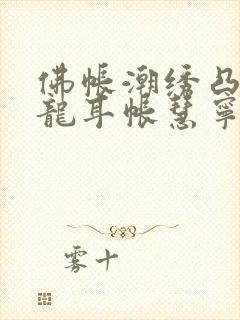 佛帐潮绣凸
龍耳帐慧寧
雾十